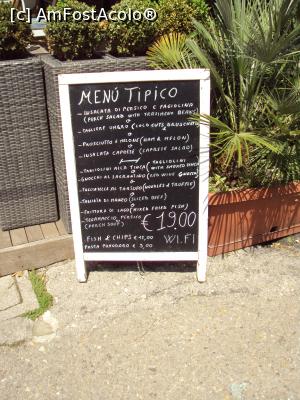 [c] AmFostAcolo®
MENÚ TIPICO
-INSALATA DI PERSICO E FAGIOLINO
(PERCH SALAD WITH BEANS)
-TAGLIERE UMBRO (COLD CUTS,
-PROSCIUTTO E MELON (HAM & MELON)
-INSALATA CAPRESE (CAPRESE SALAD)
-TAGLIOLINI ALLA TINCA (TAGLIOLINI
WITH SMOKED TENCH)
-GNOCCHI AL SAGRANTINO (RED WINE
-TAGLIATELLE AL TARTUFO (NOODLES & TRUFFLE)
-TAGLIATA DI MANZO (SLICED BEEF)
-FRITTURA DI LAGO (MIXED FRIED FISH)
PERSICO
€19,00
FISH & CHIPS €
PASTA POMODORO € 5,00
WI.FI